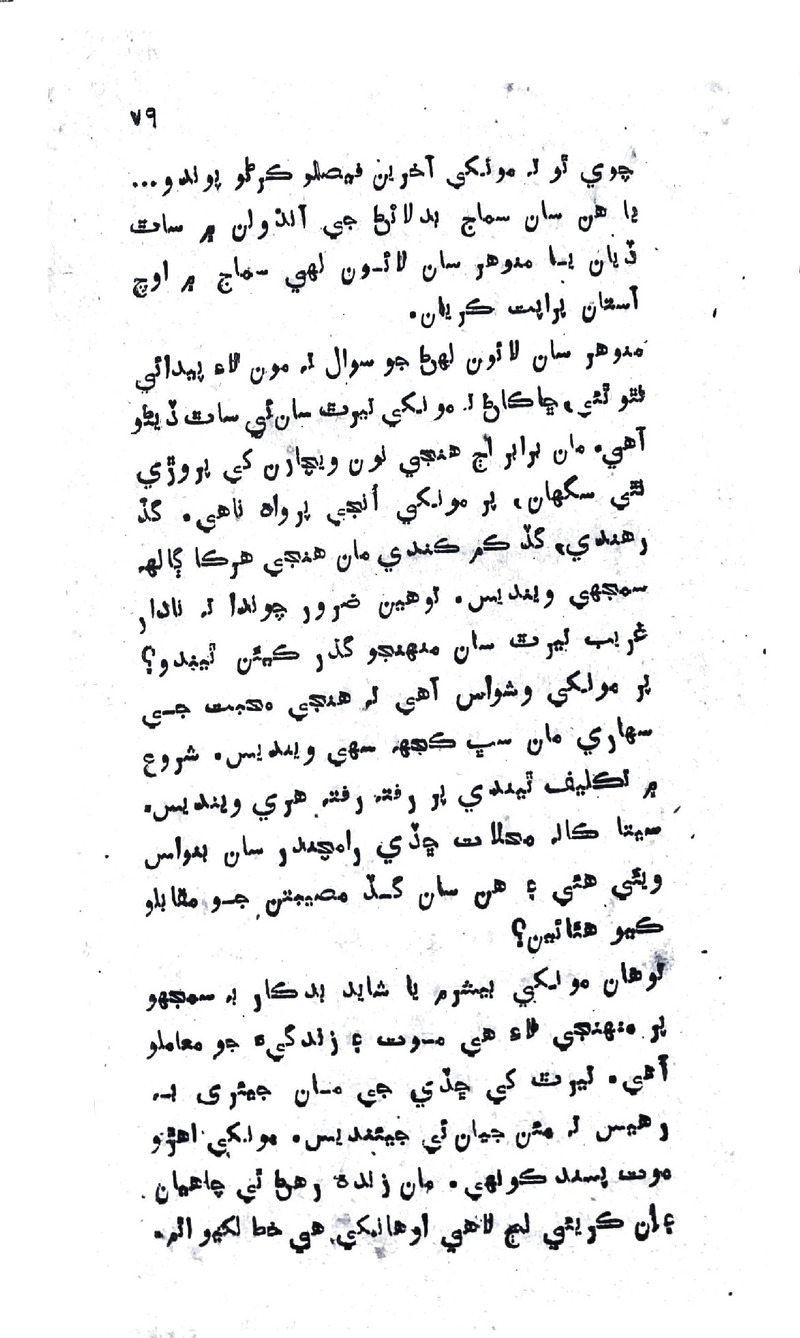 ٧٩
چوي ٿو تہ مونکي آخرين فيصلو ڪرڻو پوندو...
يا هن سان سماج بدلائڻ جي آندولن ۾ ساٿ
ڏيان يا منوهر سان لائون لهي سماج ۾ اوچ
آستان پراپت ڪريان.
منوهر سان لائون لهڻ جو سوال تہ مون لاءِ پيدائي
نٿو ٿئي، ڇاڪاڻ تہ مونکي تيرٿ سان ئي ساٿ ڏيڻو
آهي. مان برابر اڄ هنجي نون ويچارن کي پروڙي
نٿي سگهان، پر مونکي اُنجي پرواہ ناهي. گڏ
رهندي، گڏ ڪم ڪندي مان هنجي هرڪا ڳالهہ
سمجهي وينديس. توهين ضرور چوندا تہ نادار
غريب تيرٿ سان منهنجو گذر ڪيئن ٿيندو؟
پر مونکي وشواس آهي تہ هنجي محبت جي
سهاري مان سڀ ڪجهہ سهي وينديس. شروع
۾ تڪليف ٿيندي پر رفتہ رفتہ هري وينديس.
سيتا ڪالہ محلات ڇڏي رامچندر سان بنواس
ويئي هئي ۽ هن سان گڏ مصيبتن جو مقابلو
ڪيو هئائين؟
توهان مونکي بيشرم يا شايد بدڪار بہ سمجهو
پر منهنجي لاءِ هي موت ۽ زندگيءَ جو معاملو
آهي. تيرٿ کي ڇڏي جي مان جيئري بہ
رهيس تہ مئن جيان ئي جيئنديس. مونکي اهڙو
موت پسند ڪونهي. مان زندہ رهڻ ٿي چاهيان
۽ان ڪريئي لڄ لاهي اوهانکي هي خط لکيو اٿم.